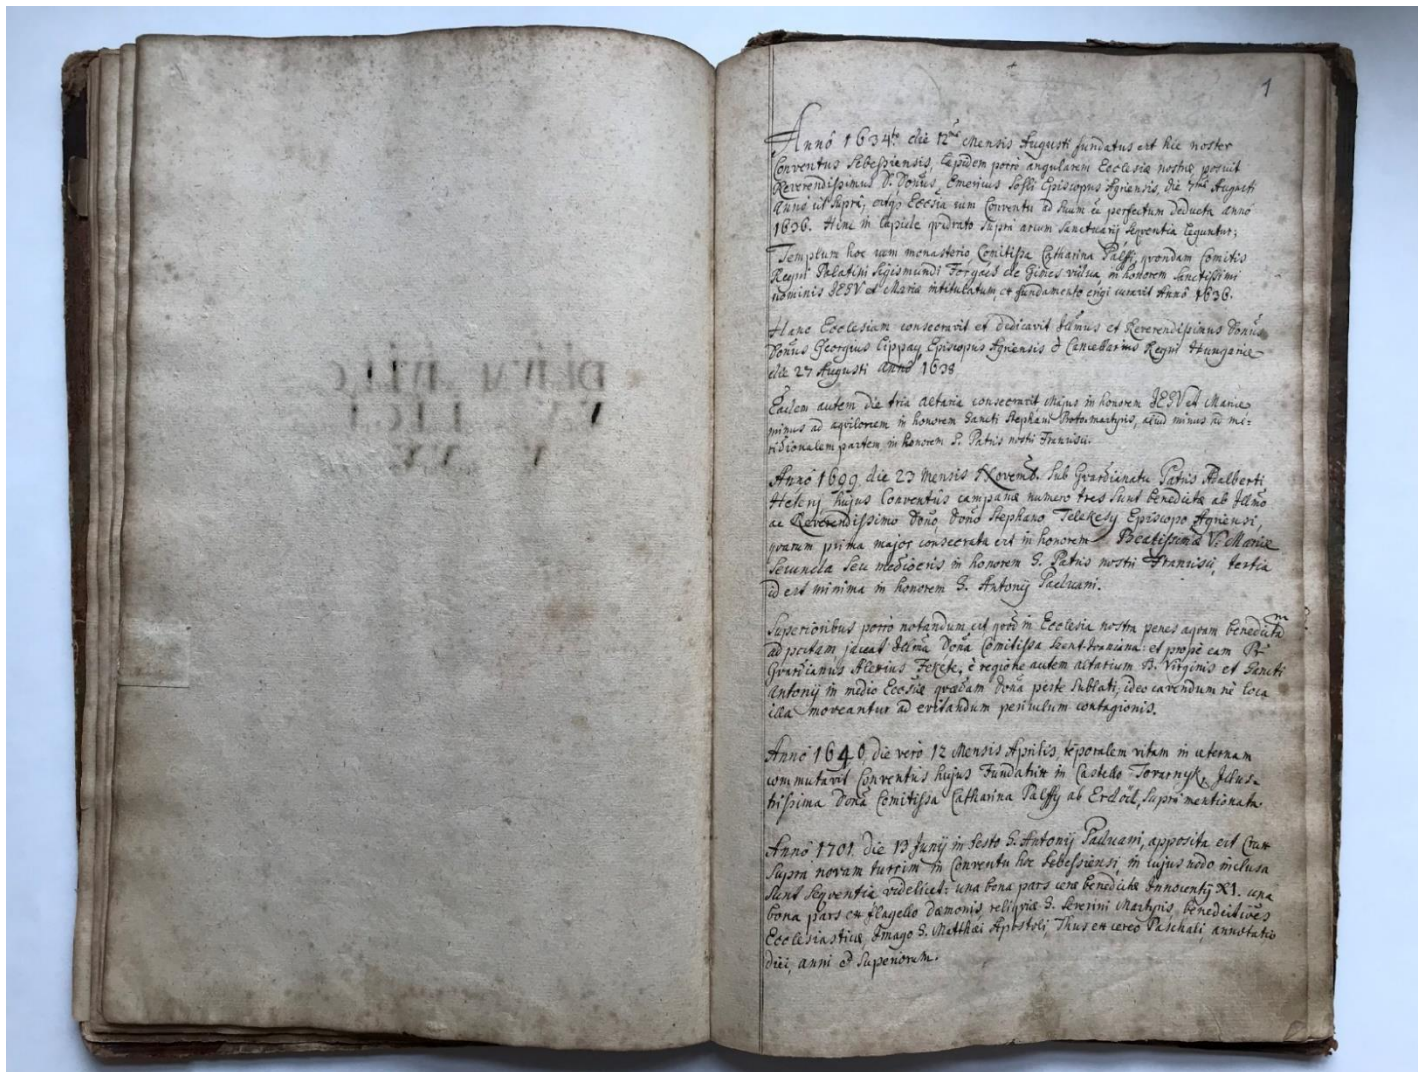 1
Annô 1634to die 12mâ Mensis Augusti fundatus est hic noster
Conventus Sebessiensis, Lapidem porrò angularem Ecclesiæ nostræ posuit
Reverendissimus D. Donus Emericus Losÿ Episcopus Agriensis, die 7mâ Augusti
Annô ut supra, Ecclesia cum Conventu ad suum perfectum deducta annô
1636. Hinc in lapide qvadrato supra arcum Sanctuarij seqventia leguntur;
Templum hoc cum monasterio Comitissa Catharina Palffi, qvondam Comitis
Regni Palatini Sigismundi Forgacs de Gimes vidua, in honorem Sanctissimi
nominis JESV et Mariæ intitulatum, et fundamento erigi curavit Annô 1636.
Hanc Ecclesiam consecravit et dedicavit Illmus et Reverendissimus Donus
Donus Georgius Lippay Episcopus Agriensis & Cancellarius Regni Hungariæ
die 27 Augusti annô 1638
Eadem autem die tria altaria consecravit Majus in honorem JESV et Mariæ
minus ad aqvilonem in honorem Sancti Stephani Protomartyris, aliud minus ad me=
ridionalem partem in honorem S. Patris nostri Francisci.
Annô 1699. die 23 Mensis Novemb. Sub Gvardianatu Patris Adalberti
Hetenj hujus Conventûs campanæ numero tres sunt benedictæ ab Illmo
ac Reverendissimo Dono, Dono Stephano Telekesy Episcopo Agriensi,
qvarum prima major consecrata est in honorem Beatissimæ V. Mariæ
Secunda seu mediocris in honorem S. Patris nostri Francisci, tertia
id est minima in honorem S. Antonij Paduani.
Superioribus porrò notandum est qvod in Ecclesia nostra penes aqvam benedictam
ad portam jaceat Illma Dona Comitissa Szent-Ivaniana: et propè eam Pr
Gvardianus Alexius Fekete, è regione autem altarium B. Virginis et Sancti
Antonij in medio Ecclsiæ qvædam Dona peste sublati, ideo cavendum nè loca
illa moveantur ad evitandum periculum contagionis.
Annô 1640, die verò 12 Mensis Aprilis, teporalem vitam in æternam
commutavit Conventus hujus Fundatrix in Castello Tovarnyk, Illus=
trissima Dona Comitissa Catharina Palffy ab Erdőd, supra mentionata.
Annô 1701. die 13 Junij in festo S. Antonij Paduani, apposita est Crux
supra novam turrim in Conventu hoc Sebessiensi, in cujus nodo inclusa
sunt seqventia videlicet: una bona pars ceræ benedictæ Innocentij XI. una
bona pars ex flagello dæmonis reliqviæ S. Severini Martyris, benedictiones
Ecclesiasticæ, Imago S. Matthæi Apostoli, Thus ex cereo Paschali, annotatio
diei, anni & Superiorum.